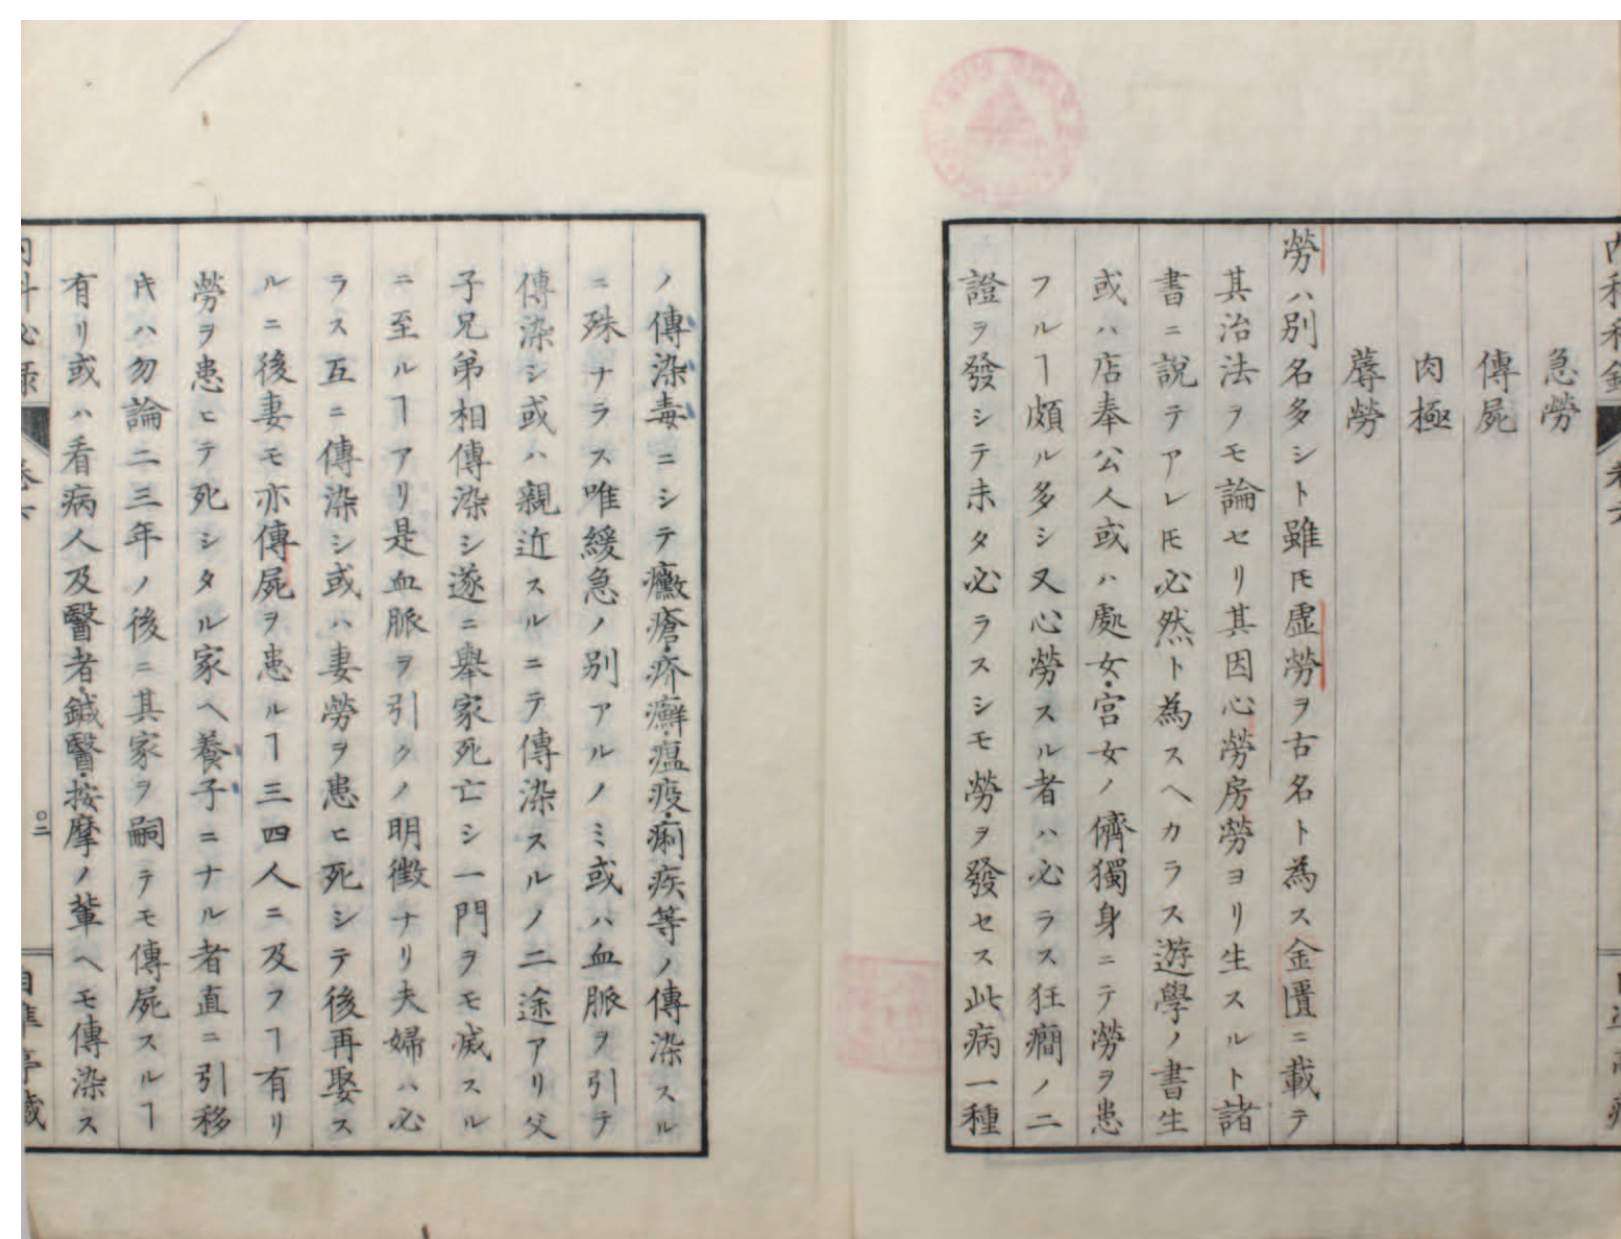 急勞
傳屍
肉極
蓐勞
勞ハ別名多シト雖𪜈虛勞ヲ古名ト為ス金匱ニ載テ
其治法ヲモ論セリ其因心勞房勞ヨリ生スルト諸
書ニ說テアレ𪜈必然ト為スヘカラス遊學ノ書生
或ハ店奉公人或ハ處女·宮女ノ儕獨身ニテ勞ヲ患
フルヿ頗ル多シ又心勞スル者ハ必ラス狂癇ノ二
證ヲ發シテ未タ必ラスシモ勞ヲ發セス此病一種
ノ傳染毒ニシテ黴瘡·疥癬·瘟疫·痢疾等ノ傳染スル
ニ殊ナラス唯緩急ノ別アルノミ或ハ血脈ヲ引テ
傳染シ或ハ親近スルニテ傳染スルノ二途アリ父
子兄弟相傳染シ遂ニ舉家死亡シ一門ヲモ滅スル
ニ至ルヿアリ是血脈ヲ引クノ明徵ナリ夫婦ハ必
ラス互ニ傳染シ或ハ妻勞ヲ患ヒ死シテ後再娶ス
ルニ後妻モ亦傳屍ヲ患ルヿ三四人ニ及フヿ有リ
勞ヲ患ヒテ死シタル家ヘ養子ニナル者直ニ引移
𪜈ハ勿論二三年ノ後ニ其家ヲ嗣テモ傳屍スルヿ
有リ或ハ看病人及醫者·鍼醫·按摩ノ輩ヘモ傳染ス
内科必錄